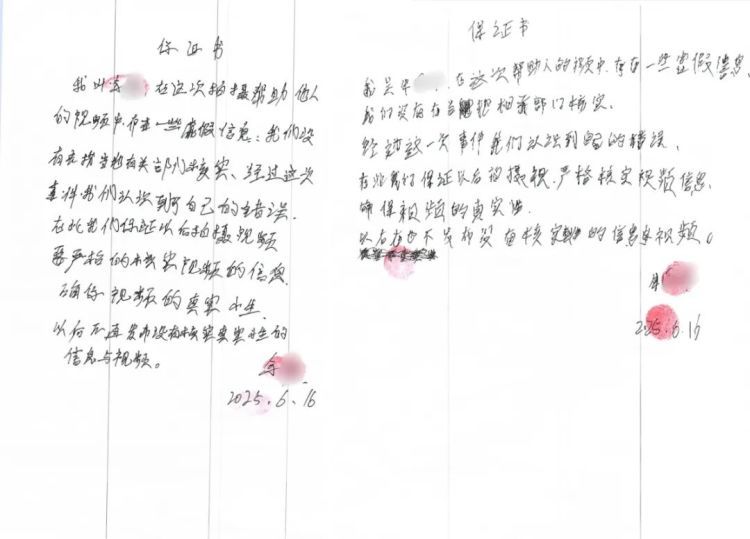 保证书
我叫 在这次拍摄帮助他人
的视频中存在一些虚假信息，我们没
有去找当地有关部门核实、经过这次
事件我们认识到了自己的错误.
在此我们保证以后拍摄视频
要严格的核实视频的信息
确保视频的真实性.
以后不再发布没有核实真实性的
信息与视频。
余
2025.6.16
保证书
我是 在这次帮助人的视频中,存在一些虚假信息,
我们没有在当地把相关部门核实.
经过这一次事件我们认识到的错误、
在此我们保证以后拍摄视,严格核实视频信息,
确保视频的真实性.
以后在也不发布没有核实的信息和视频。
2025.6.16